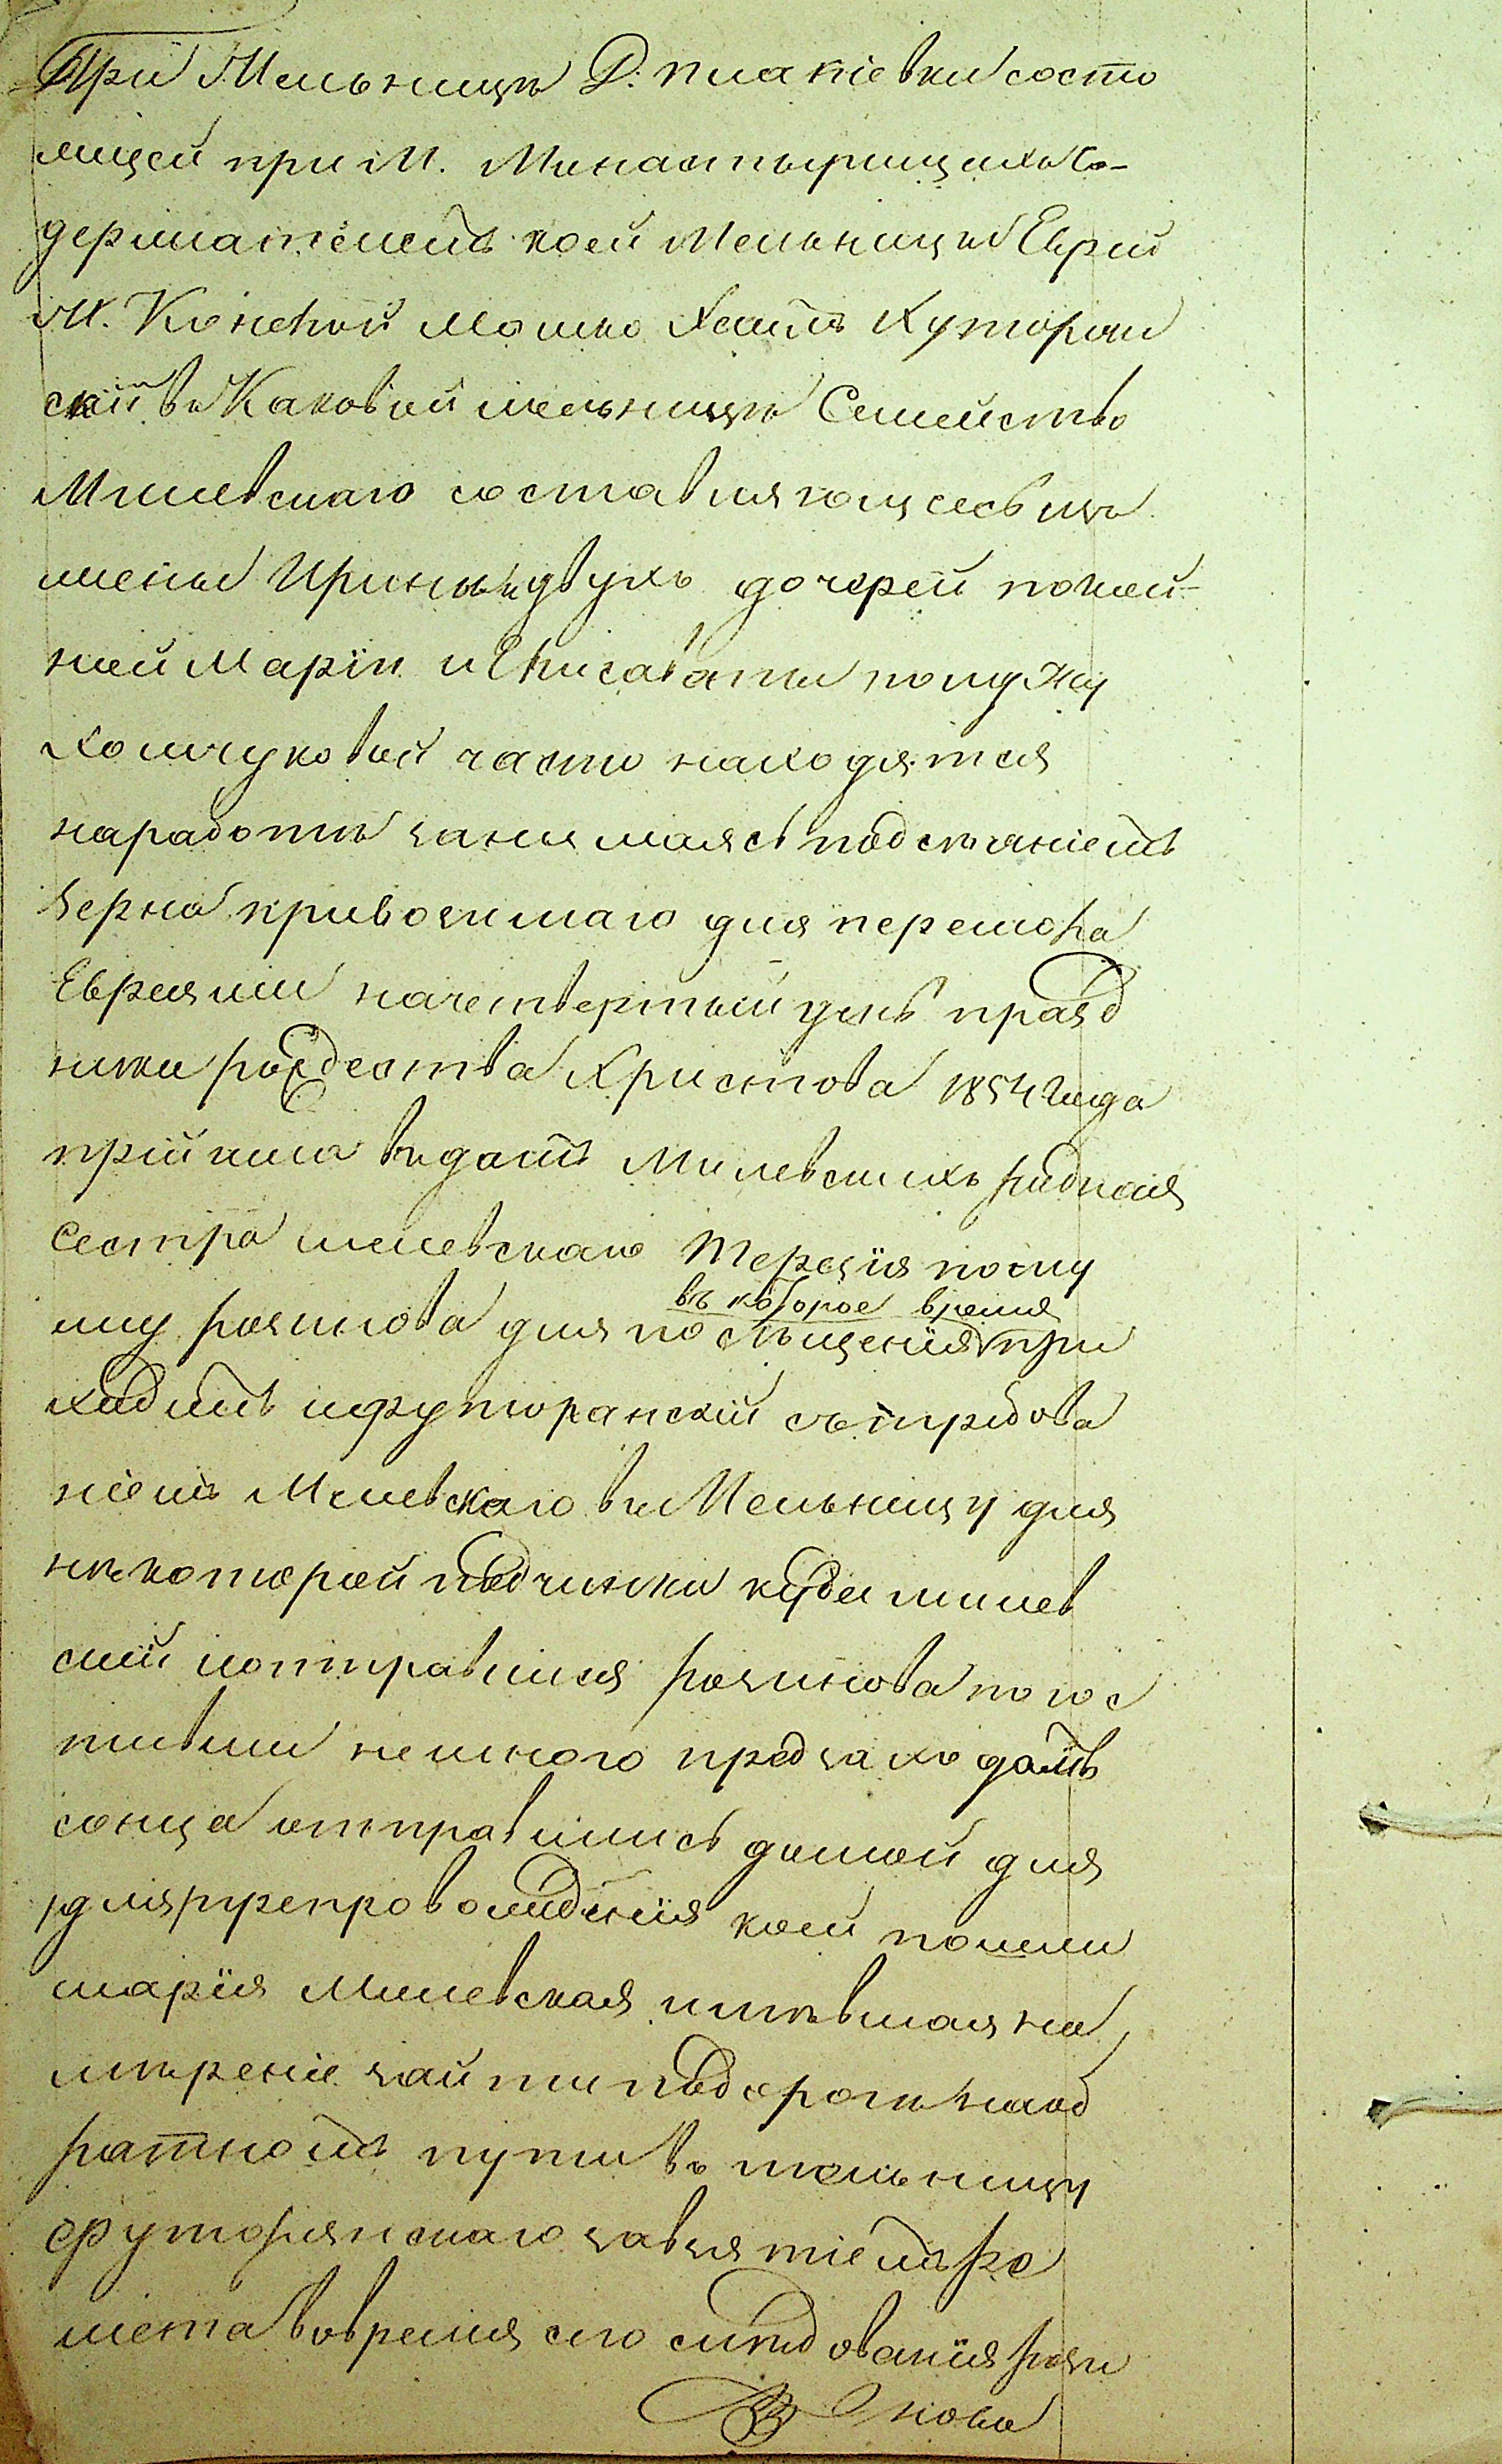 При Мельницѣ Д: Пиакіевки состо
ящей при М. Монастырищахъ Со-
держателемъ коей Мельницы Еврей
М. Конской Мошко Хаимъ Хуторан
скій въ Каковой мельницѣ Семейство
Милевскаго составляющееся изъ
жены Ирины и двухъ дочерей покой-
ной Маріи и Елисаветы по мужу
Хомчуковой часто находятся
на работѣ занимаясь подсѣяніемъ
зерна привозимаго для перемола
Евреями на четвертый день празд
ника рождества Христова 1854 года
прійшла въ домъ Милевскихъ родная
сестра милевскаго Терезія по му
жу розинова для посѣщенія въ которое время при
ходитъ и Футоранскій съ требова
ніемъ Милевскаго въ Мельницу для
нѣкоторой подчинки куда милев
скій и отправился розинова погос
тивши немного предъ заходомъ
сонца отправилась домой для
для препровождѣнія коей пошли
марія Милевская имѣвшая на
мѣреніе зайти по дорогѣ на об
ратномъ пути въ мельницу
Футорянскаго за взятіемъ ре
шета во время сего слѣдованія рози
нова